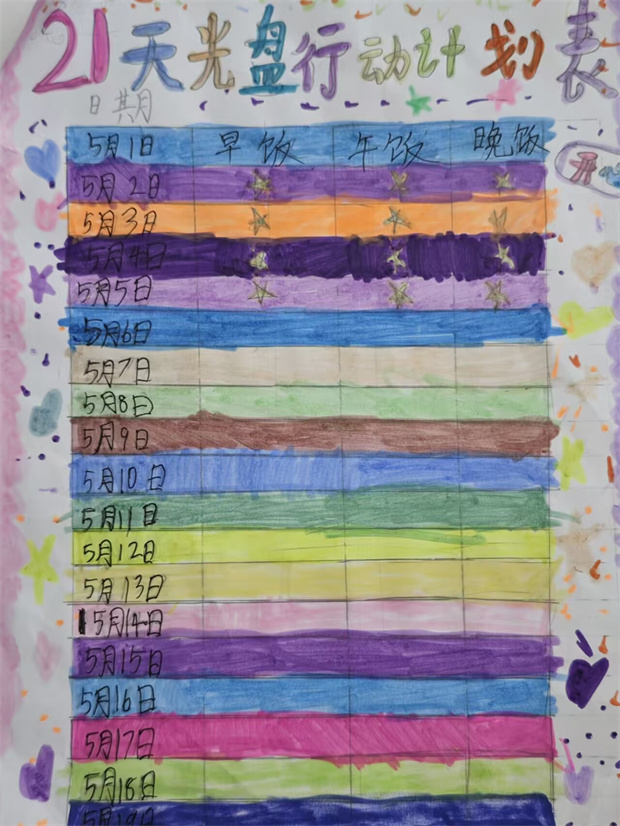 21天光盘行动计划表
日期
5月1日 早饭 午饭 晚饭
开心
5月2日
5月3日
5月4日
5月5日
5月6日
5月7日
5月8日
5月9日
5月10日
5月11日
5月12日
5月13日
5月14日
5月15日
5月16日
5月17日
5月18日
5月19日